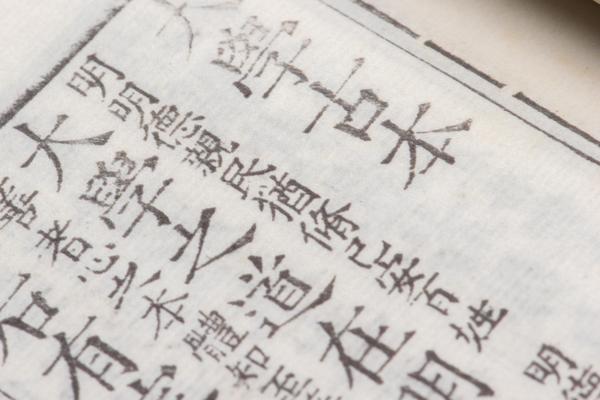 大學古本
明明德親民猶脩己安百姓 明德
大學之道在明
善者心之本體知至
后有